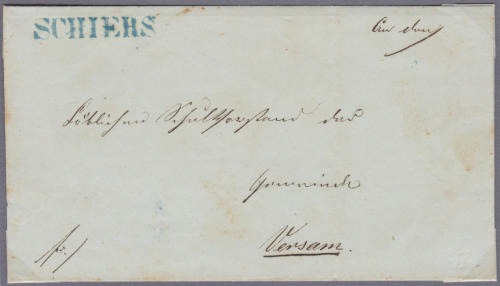 SCHIERS
An den
Löblichen Schulvorstand der
Gemeinde
Versam.